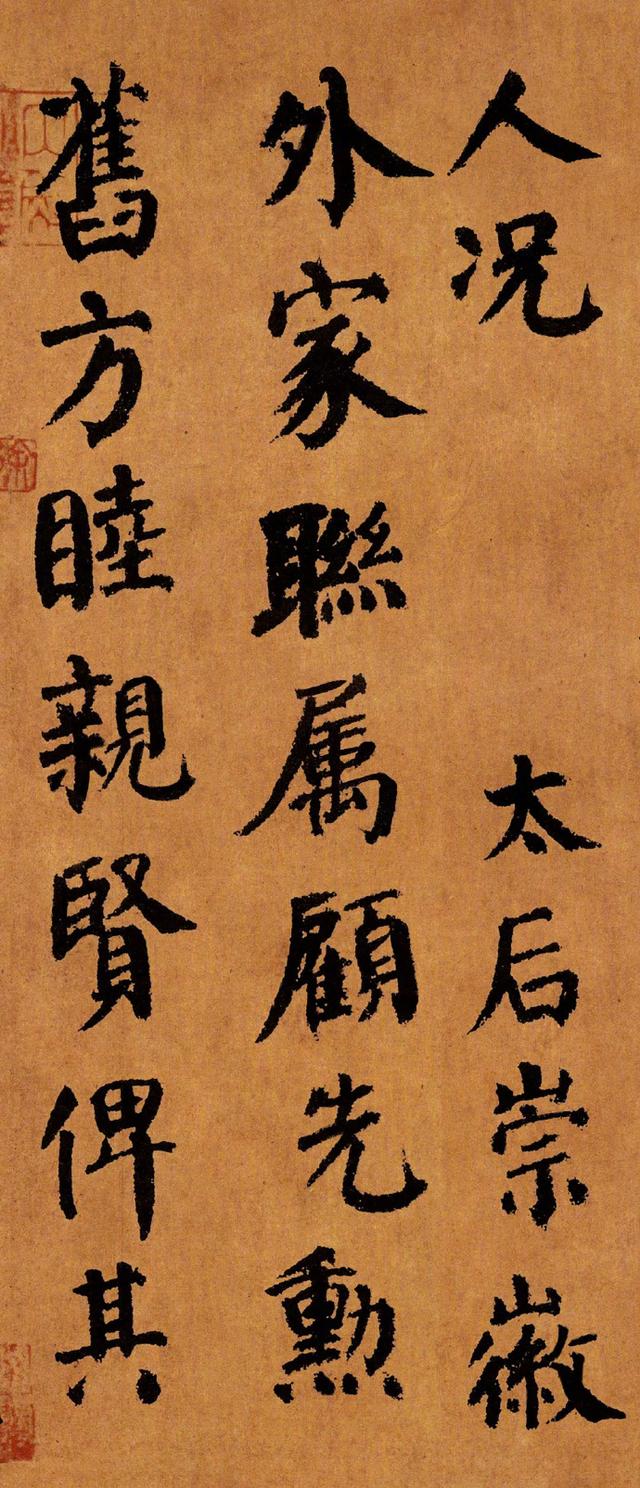 人况 太后崇徽
外家聮属顧先勲
舊方睦親賢俾其